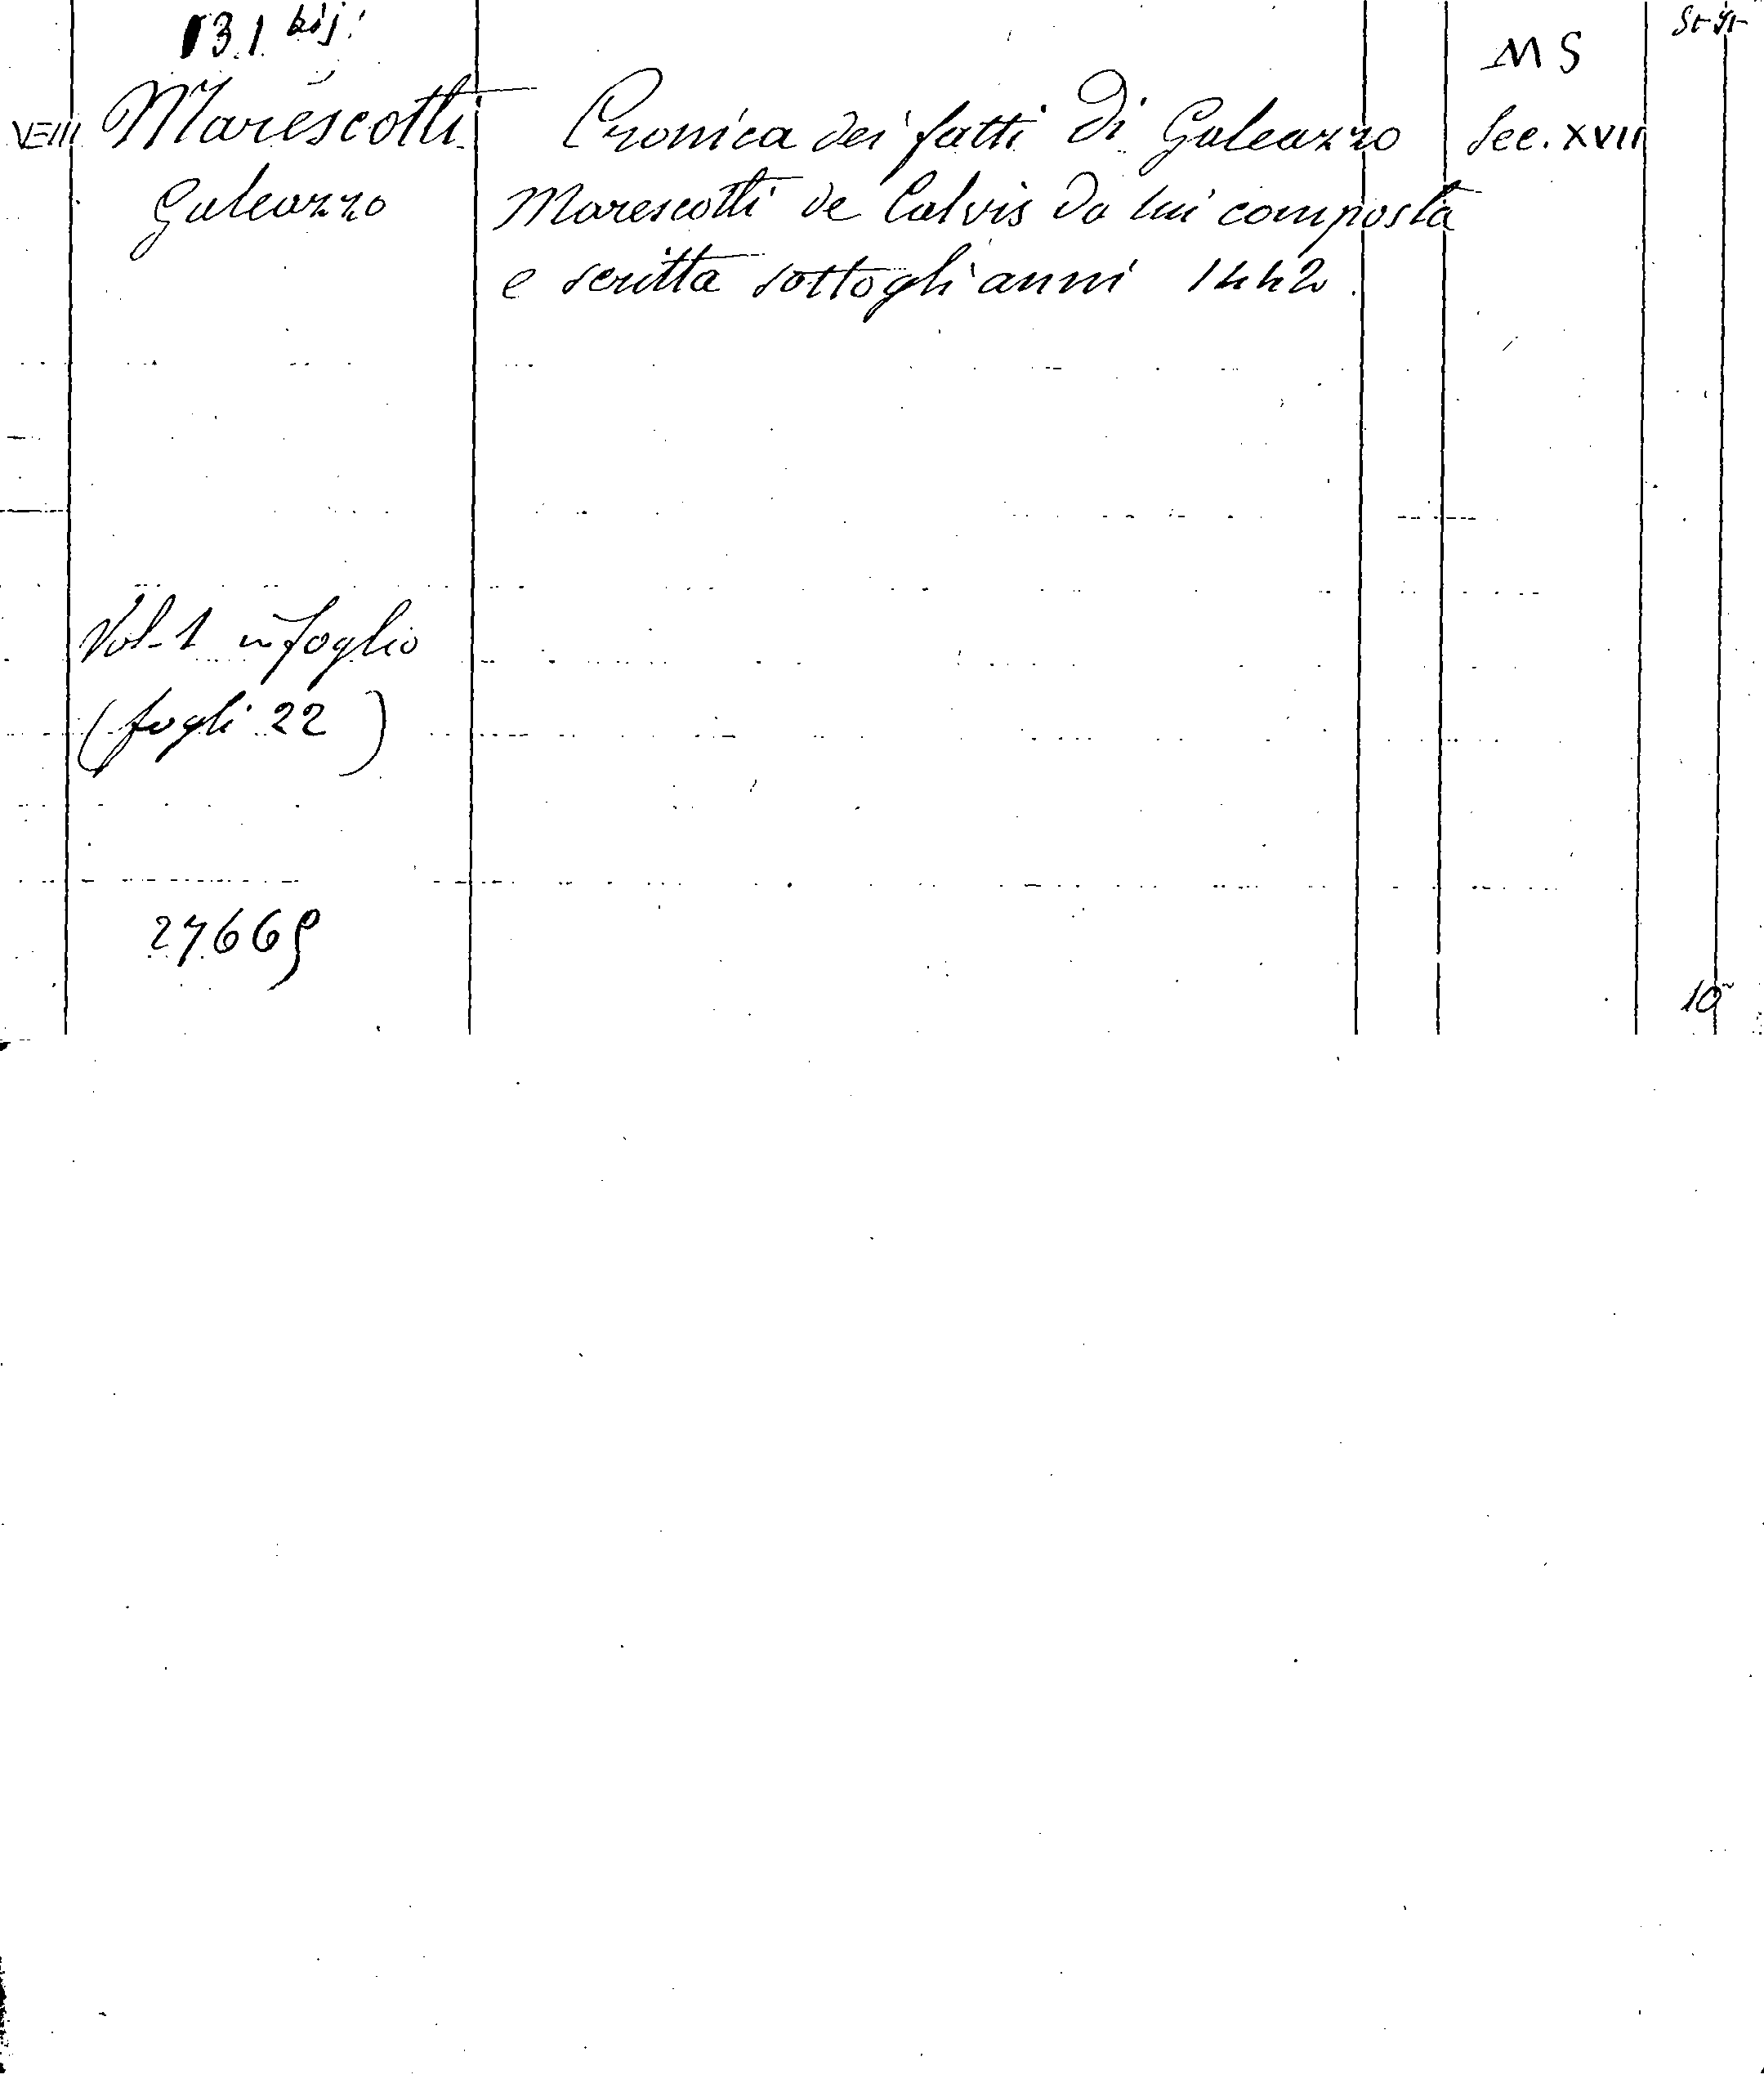 131 bis
MS
VEIII Marescotti Cronica dei fatti di Galeazzo Sec. XVII
Galeazzo Marescotti de Calvis da lui composta
e scritta sotto gli anni 1442.
Vol. 1 in foglio
(fogli 22)
27669
10